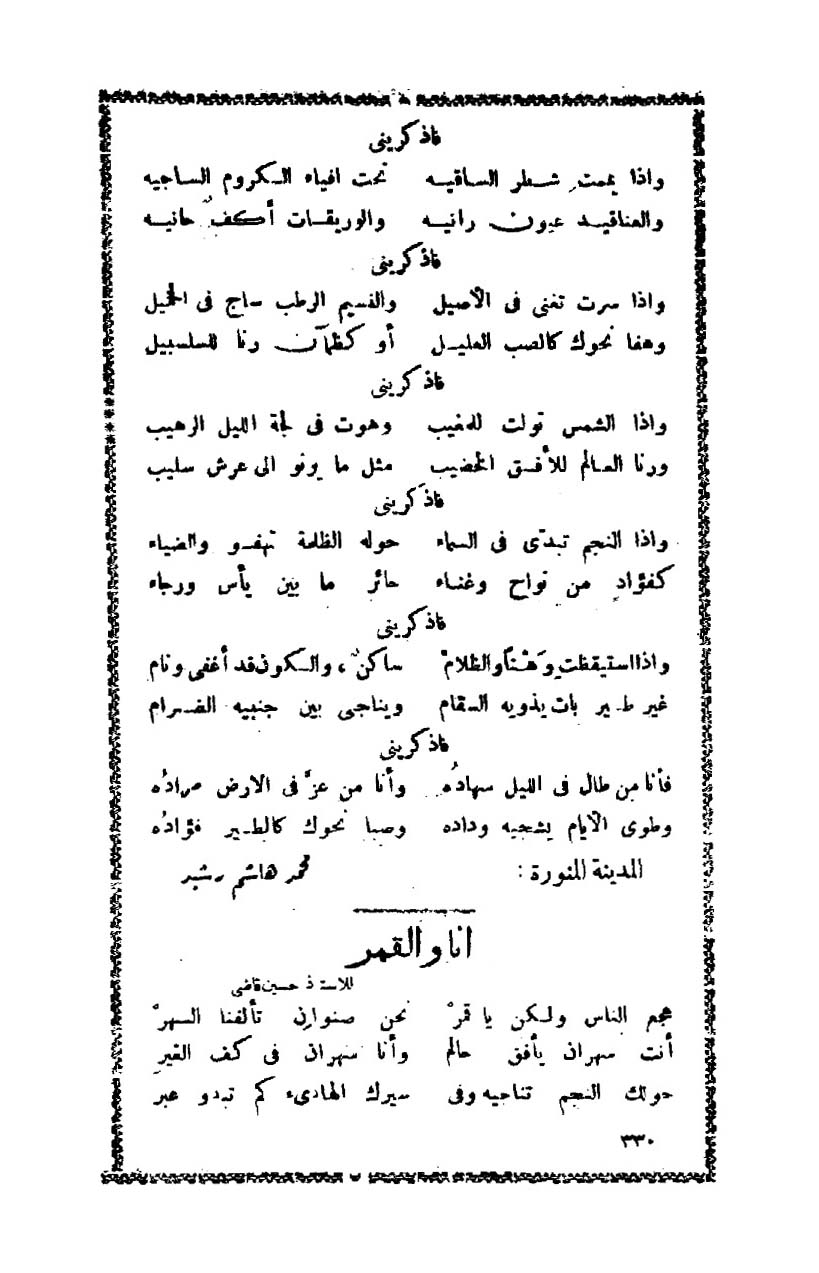 فاذكرينى
واذا يممت شطر الساقيه تحت افياء الكروم الساجيه
والعناقيد عيون رانيه والوريقات أكف حانيه
فاذكرينى
واذا سرت تغنى فى الأصيل والنسيم الرطب ساج فى الخميل
وهفا نحوك كالصب العليل أو كظمآن رنا للسلسبيل
فاذكرينى
واذا الشمس تولت للمغيب وهوت فى لجة الليل الرهيب
ورنا العالم للأفق الخضيب مثل ما يرنو الى عرش سليب
فاذكرينى
واذا النجم تبدّى فى السماء حوله الظلمة تهفو والضياء
كفؤادٍ من نواح وغناء حائر ما بين يأس ورجاء
فاذكرينى
واذا استيقظت وَهْناً والظلامْ ساكنٌ ، والسكون قد أغفى ونام
غير طير بات يذويه السقام ويناجى بين جنبيه الضرام
فاذكرينى
فأنا من طال فى الليل سهادُه وأنا من عزَّ فى الارض مرادُه
وطوى الأيام يشجيه وداده وصبا نحوك كالطير فؤادُه
المدينة المنورة : محمد هاشم رشيد
انا والقمر
للاستاذ حسين قاضى
هجع الناس ولكن يا قمرْ نحن صنوان تألفنا السهرْ
أنت سهران بأفق حالم وأنا سهران فى كف القدر
حولك النجم تناجيه وفى سيرك الهادىء كم تبدو عبر
٣٣٠